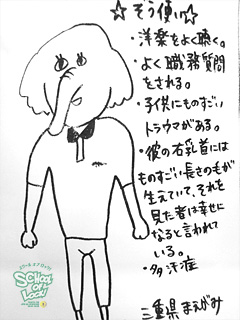 ☆ぞう使い☆
・洋楽をよく聴く。
・よく職務質問
をされる。
・子供にものすごい
トラウマがある。
・彼の右乳首には
ものすごい長さの毛が
生えていて、それを
見た者は幸せに
なると言われて
いる。
・多汗症
三重県 まえがみ
SCHOOL
OF
LOCK!